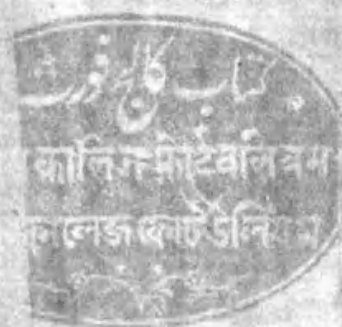 کتاب کالج فورٹ
कालिज फोर्टवलियम
কালেজ ফোর্ট উলিয়ম